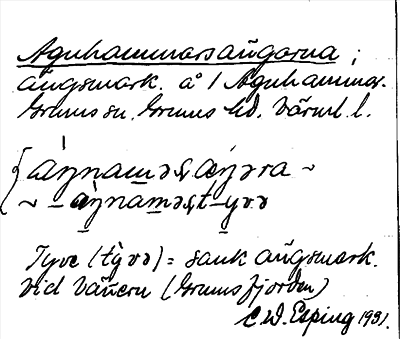 Agnhammarsängarna;
ängsmark. å 1 Agnhammar.
Grums sn. Grums hd. Värml. l.
áŋnaməʂ æŋəra ~
~ – àŋnaməʂt-yvə
Tyve (tỳvə) = sank ängsmark.
vid Vänern (Grumsfjorden)
C.W. Esping 1931.